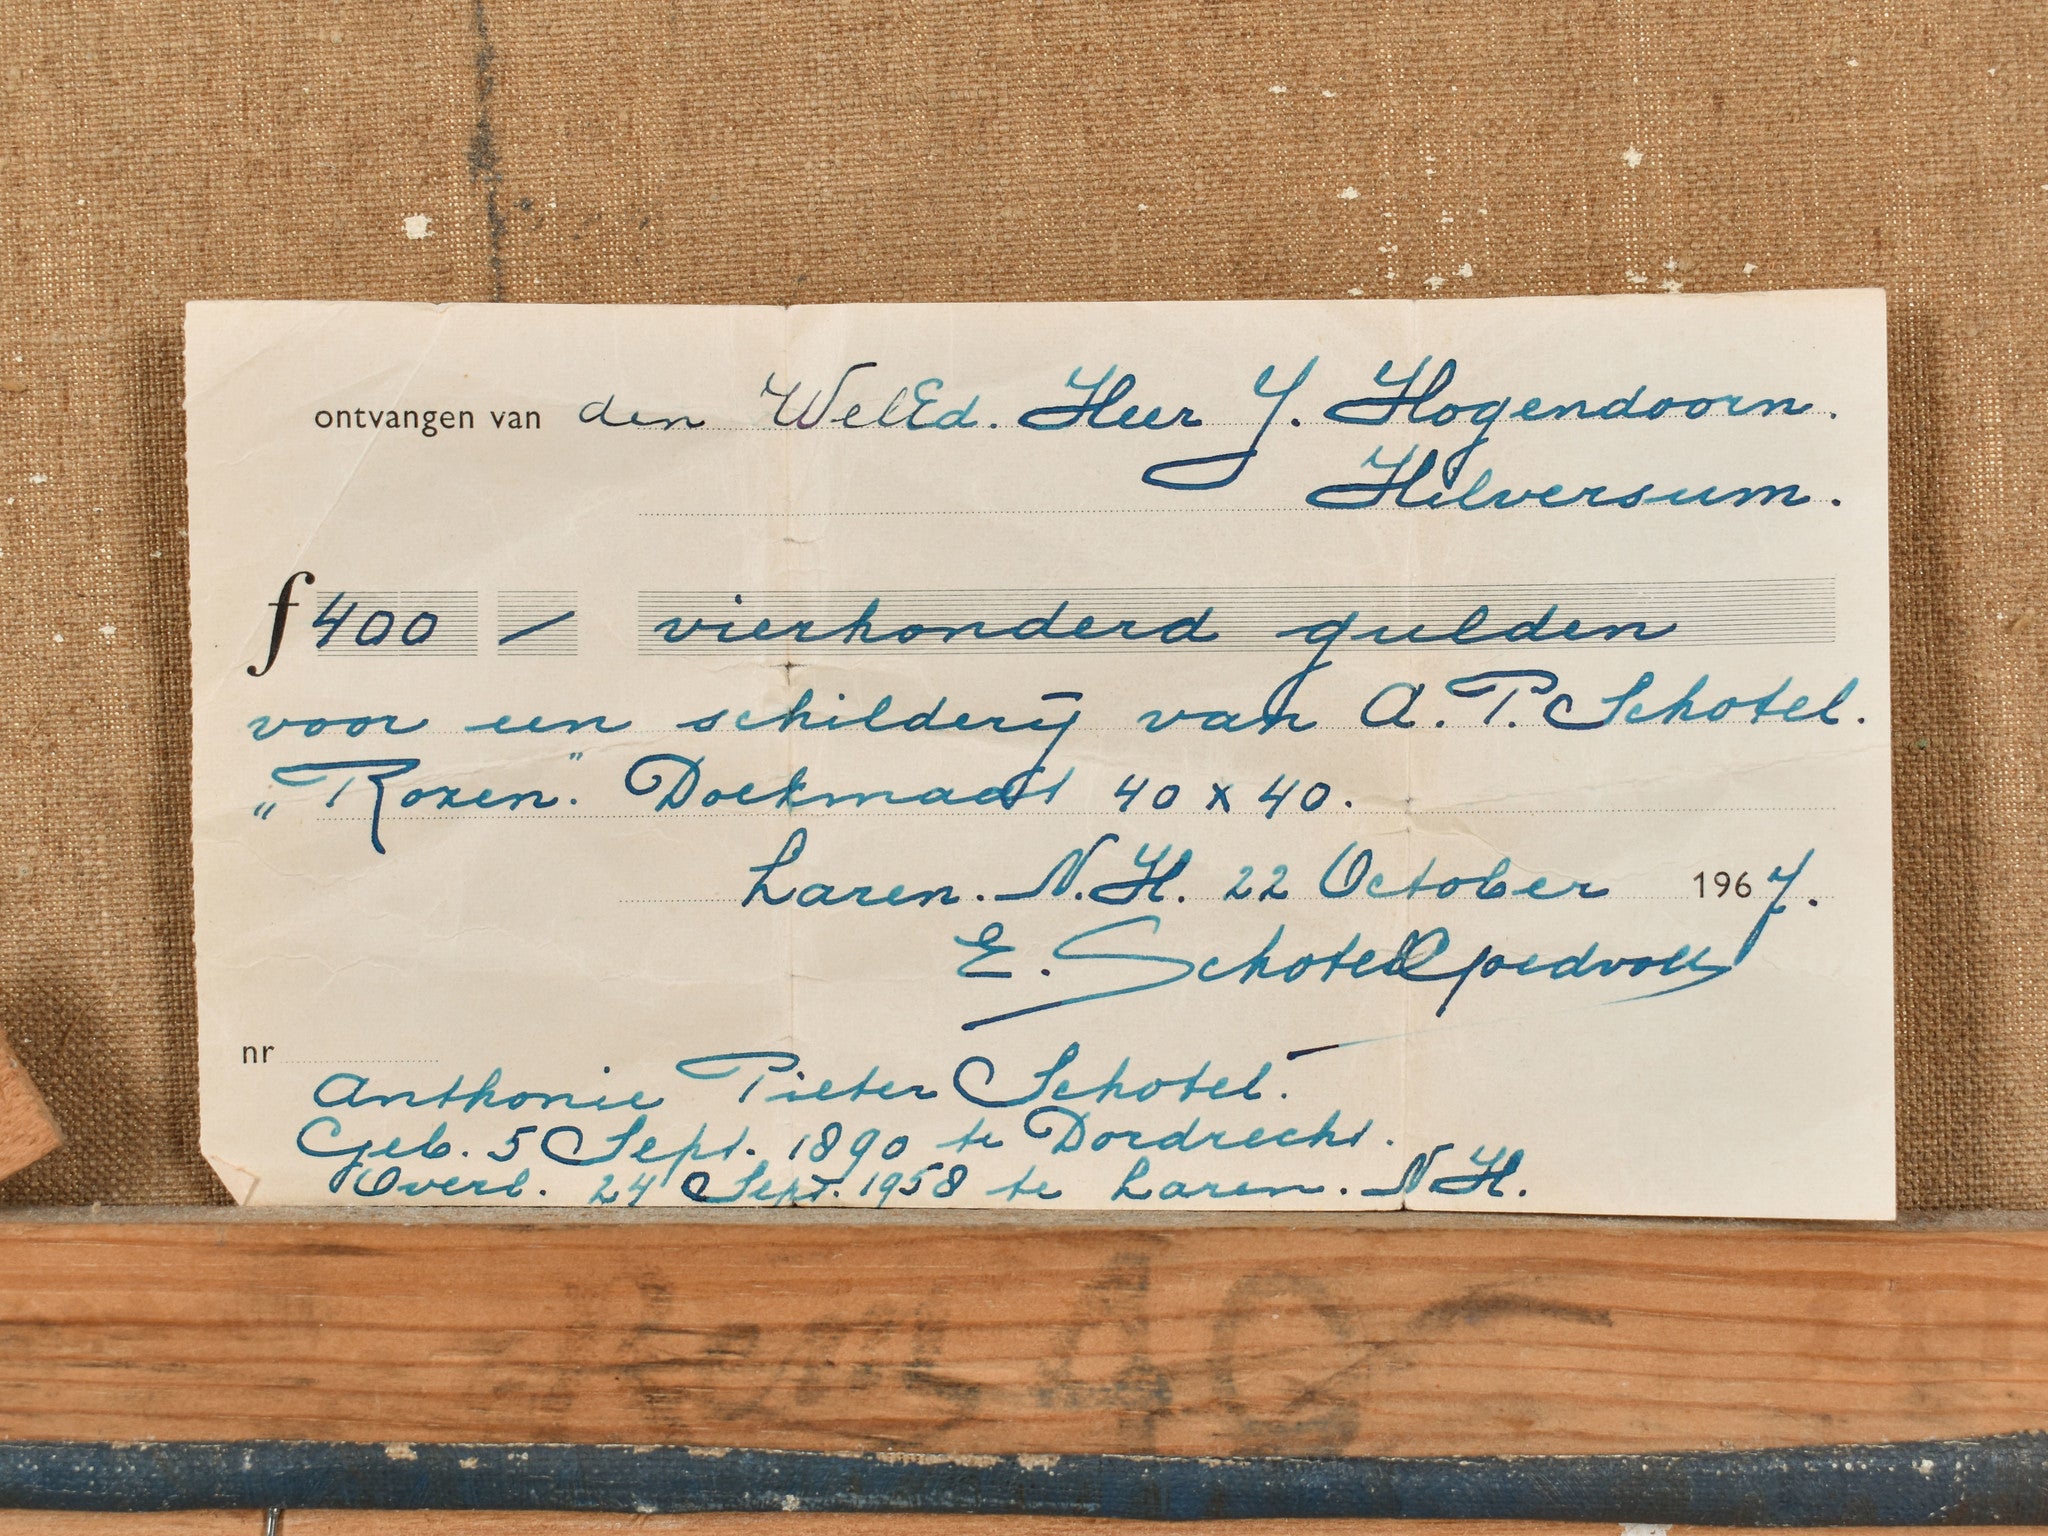 ontvangen van den WelEd. Heer J. Hogendoorn.
Hilversum.
f 400 — vierhonderd gulden
voor een schilderij van A. P. Schotel.
„Rozen". Doekmaat 40 x 40.
Laren. N.H. 22 October 1967.
E. Schotel
nr
Anthonie Pieter Schotel.
Geb. 5 Sept. 1890 te Dordrecht.
Overl. 24 Sept. 1958 te Laren. N.H.